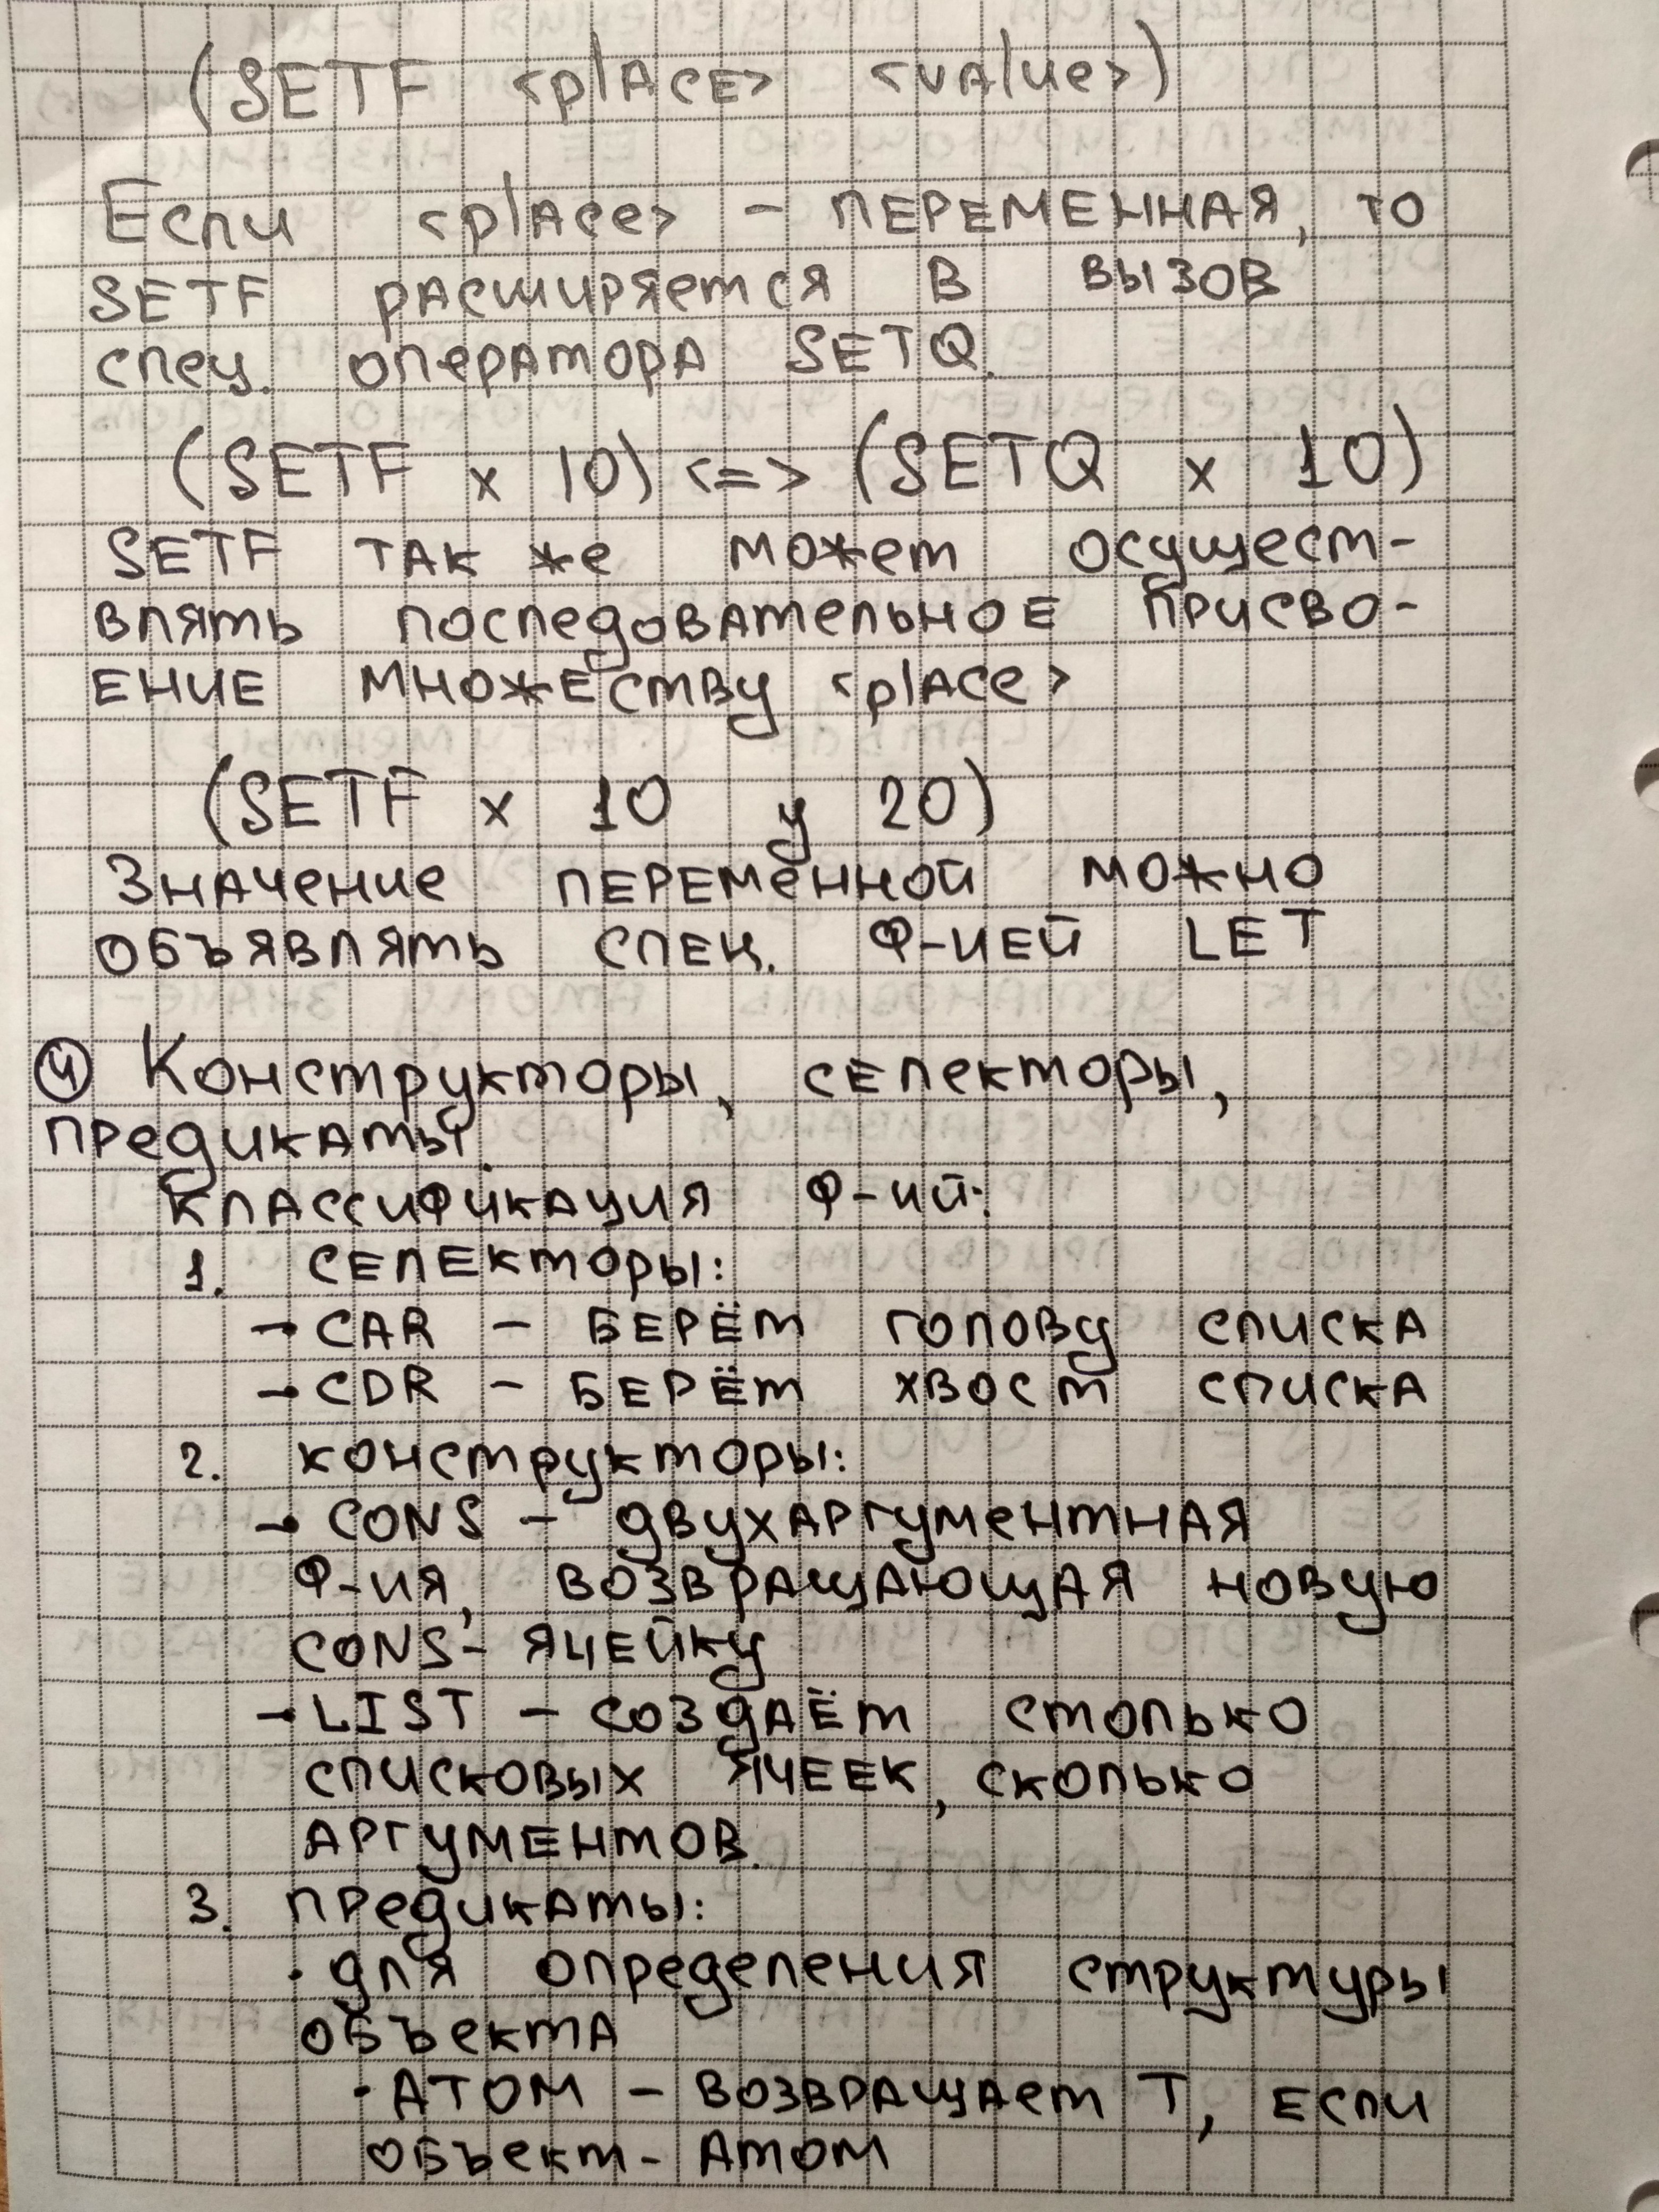 (SETF <plACE> <vAlue>)
Если <plAce> - ПЕРЕМЕННАЯ, то
SETF расширяется в вызов
спец. оператора SETQ.
(SETF x 10) <=> (SETQ x 10)
SETF так же может осущест-
влять последовательное присво-
ение множеству <plAce>
(SETF x 10 y 20)
Значение переменной можно
объявлять спец. ф-цией LET
④ Конструкторы, селекторы,
предикаты.
Классификация ф-ий:
1. селекторы:
→ CAR - берём голову списка
→ CDR - берём хвост списка
2. конструкторы:
→ CONS - двухаргументная
ф-ия, возвращающая новую
CONS-ячейку
→ LIST - создаём столько
списковых ячеек, сколько
аргументов.
3. предикаты:
· для определения структуры
объекта
· ATOM - возвращает T, если
объект - атом